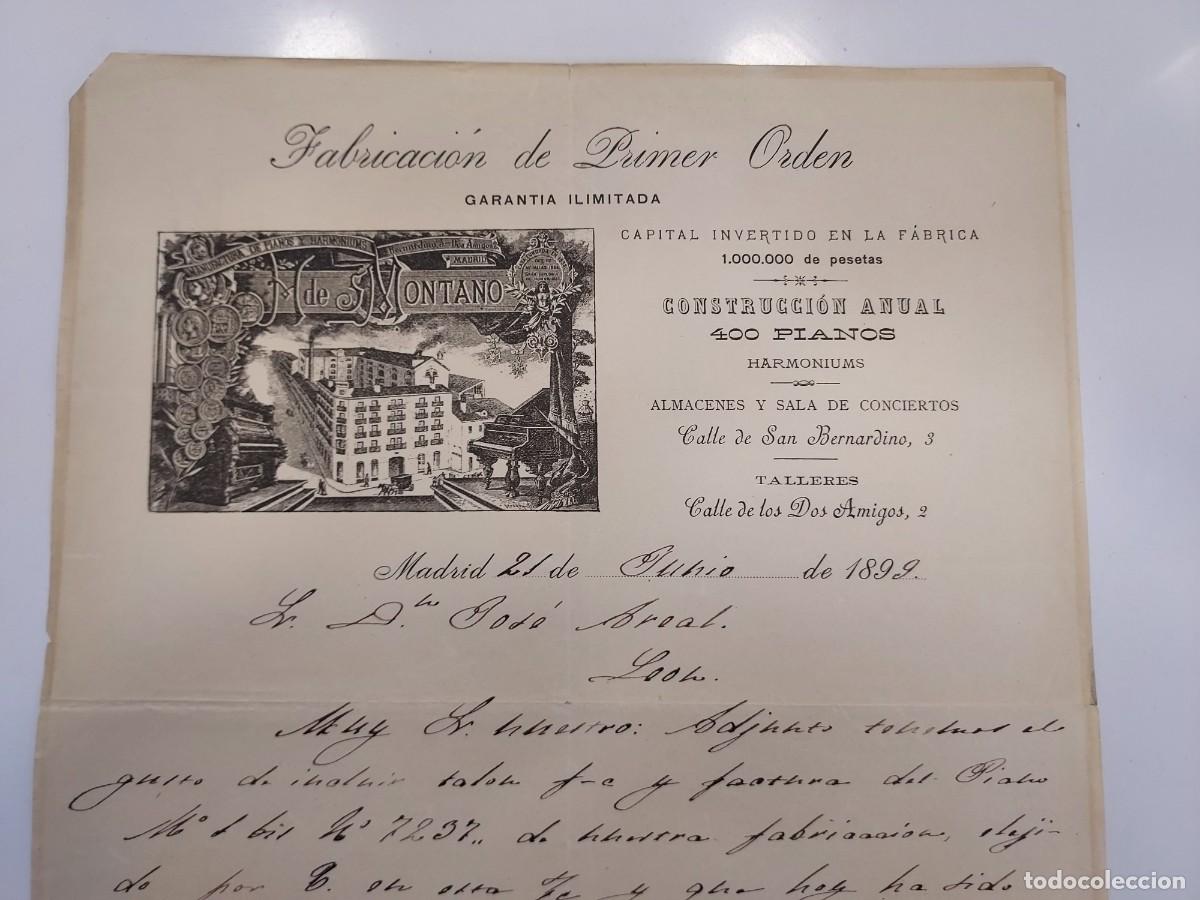 Fabricación de Primer Orden
GARANTIA ILIMITADA
MANUFACTURA DE PIANOS Y HARMONIUMS
Sn Bernardino, 3 - Dos Amigos, 2
MADRID
H de S Montano
CAPITAL INVERTIDO EN LA FÁBRICA
1.000.000 de pesetas
CONSTRUCCIÓN ANUAL
400 PIANOS
HARMONIUMS
ALMACENES Y SALA DE CONCIERTOS
Calle de San Bernardino, 3
TALLERES
Calle de los Dos Amigos, 2
Madrid 21 de Junio de 1899.
Sr. Dn José Areal.
Leon.
Muy Sr. nuestro: Adjunto tenemos el
gusto de incluir talon f-c y factura del Piano
Mº 1 bis Nº 7237,, de nuestra fabricacion, eleji-
do por V. en esta Fca y que hoy ha sido
todocoleccion